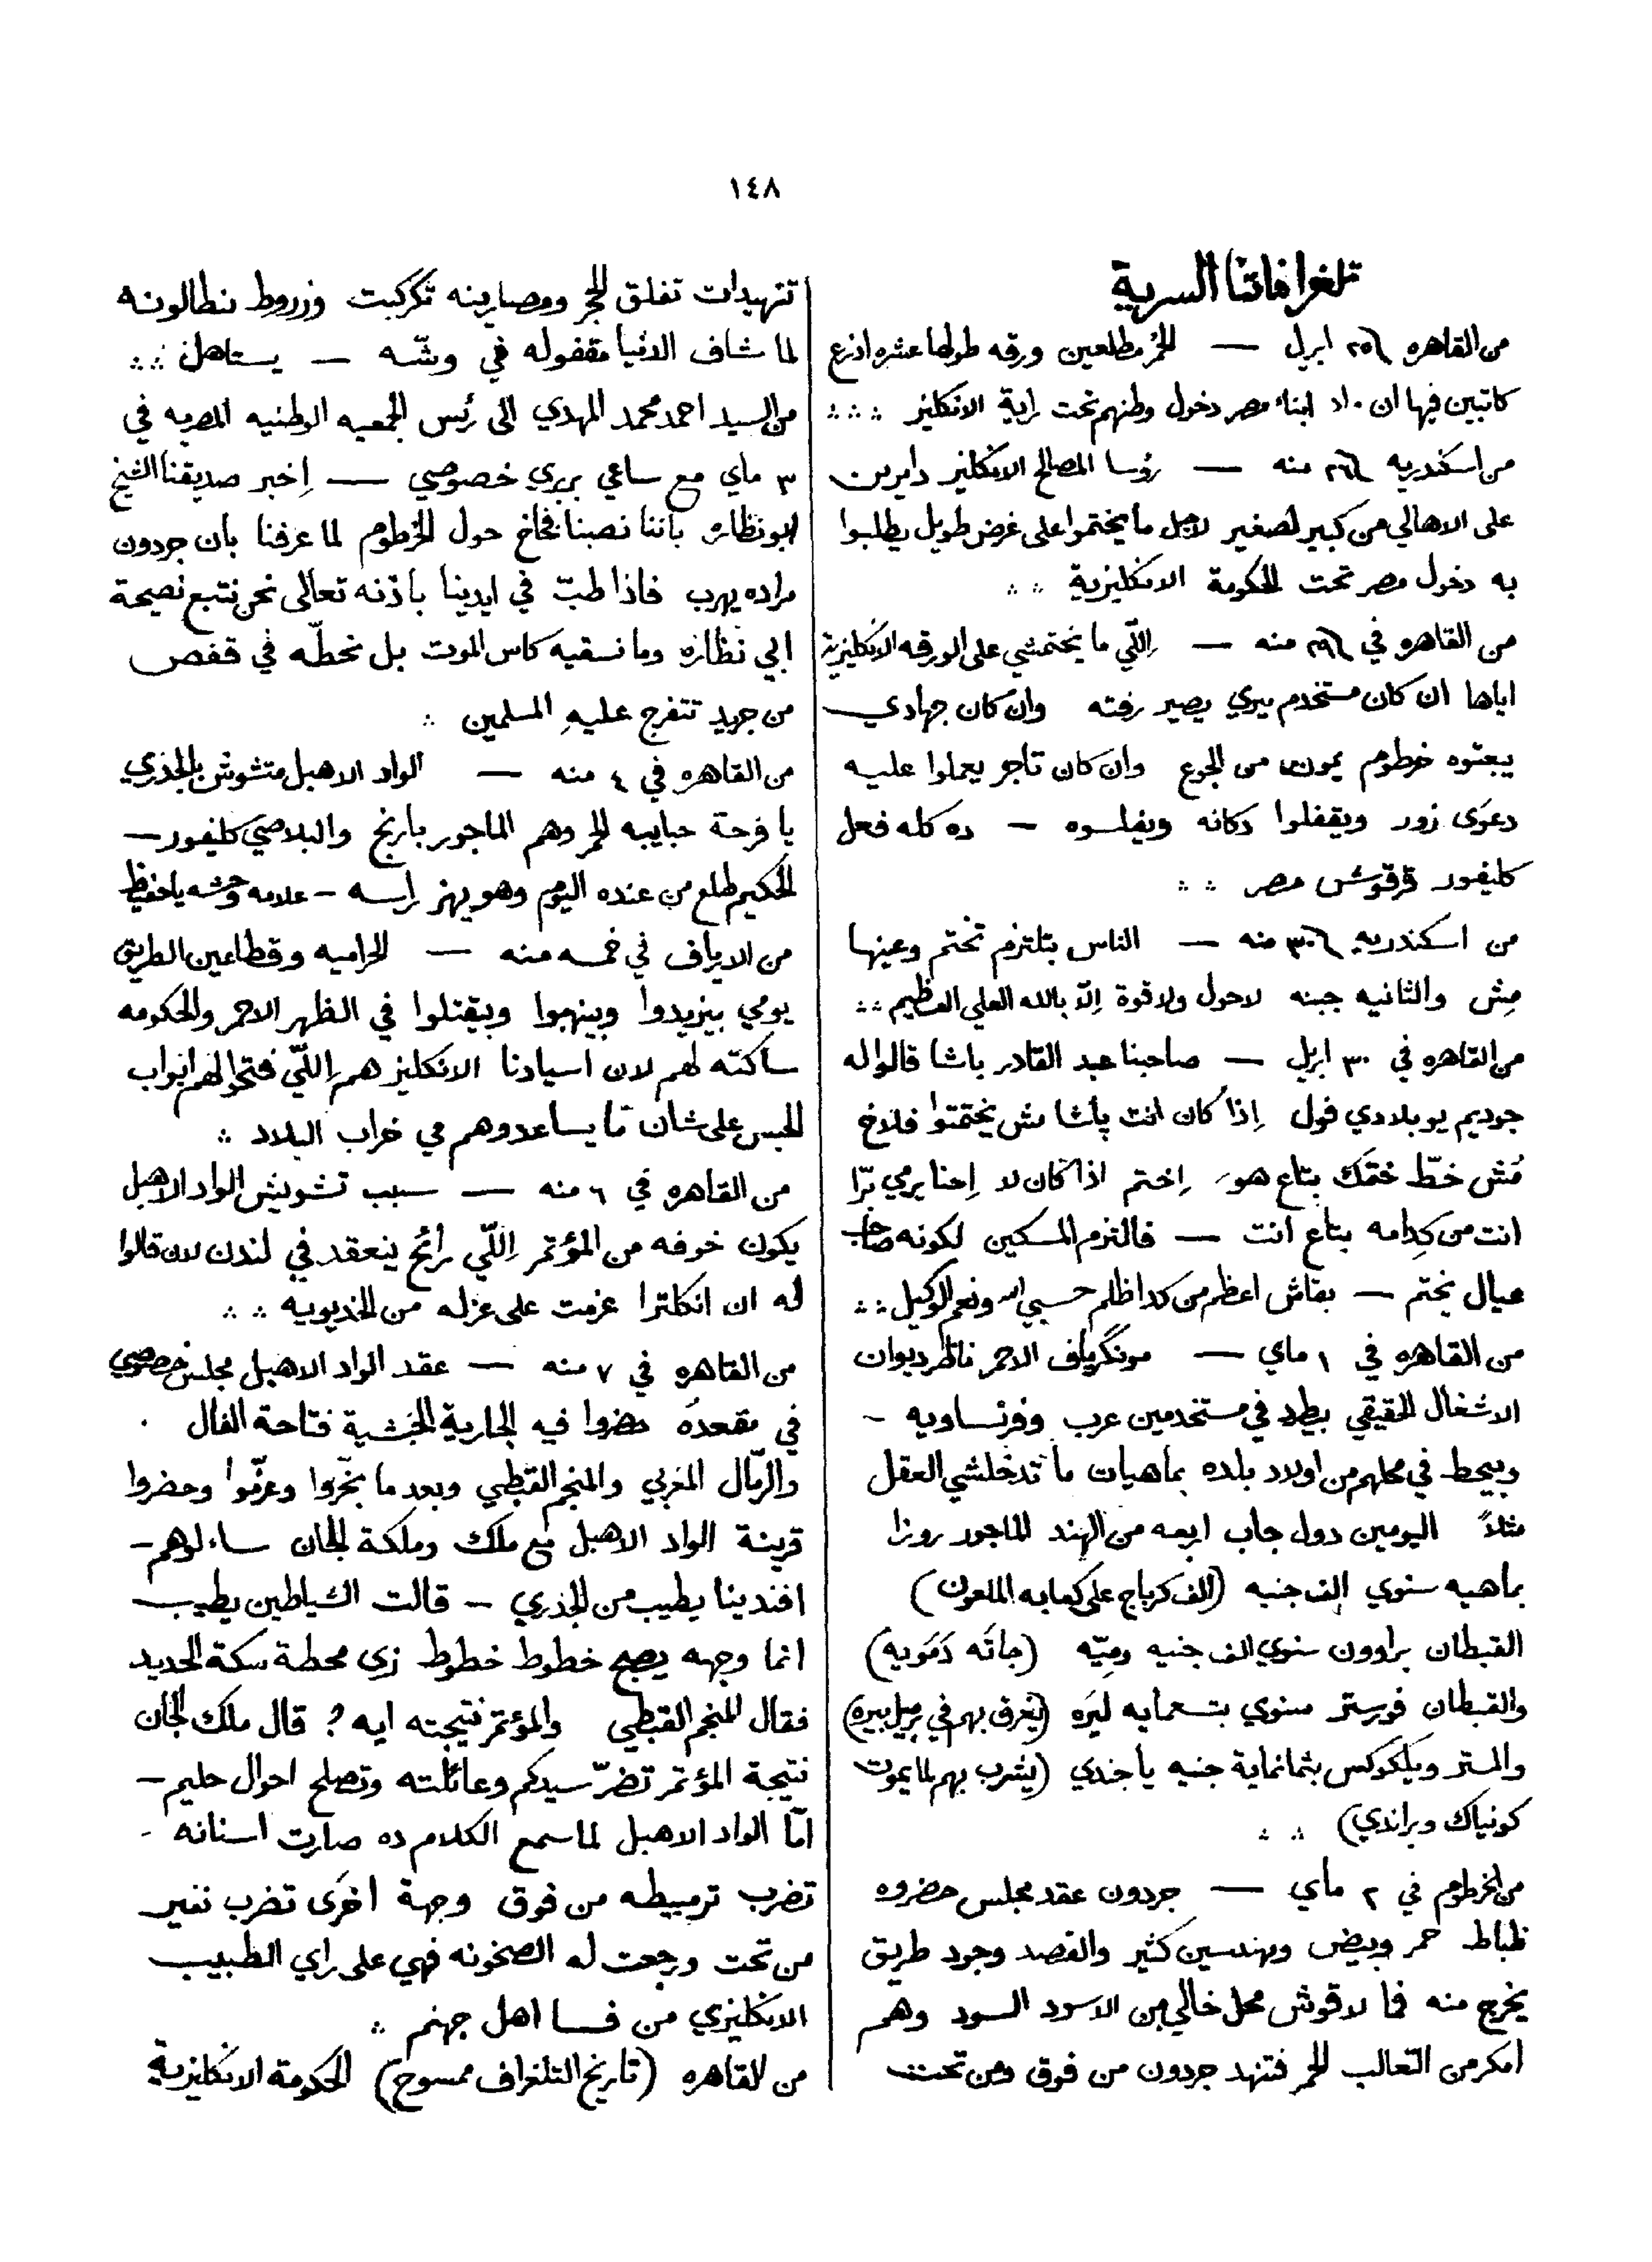 ١٤٨
تلغرافاتنا السرية
من القاهره ٢٥ ابريل — الحُمر مطلعين ورقه طولها عشره اذرع
كاتبين فيها ان مراد ابناء مصر دخول وطنهم تحت راية الانكليز
من اسكندريه ٢٦ منه — رؤسا المصالح الانكليز دايرين
على الاهالي من كبير لصغير لاجل ما يختموا على غرض طويل يطلبوا
به دخول مصر تحت الحكومة الانكليزية
من القاهره في ٢٩ منه — اِللّي ما يختمشي على الورقه الانكليزية
اياها ان كان مستخدم ميري يصير رفته وان كان جهادي
يبعتوه خرطوم يموت من الجوع وان كان تاجر يعملوا عليه
دعوَى زور ويقفلوا دكانه ويفلسوه — ده كله فعل
كليفور قرقوش مصر
من اسكندريه ٣٠ منه — الناس بتلتزم تختم وعينها
مِش والثانيه جبنه لاحول ولا قوة اِلّا بالله العلي العظيم
من القاهره في ٣٠ ابريل — صاحبنا عبد القادر باشا قالوا له
جوديم يو بلادي فول اِذا كان انت پاشا مش يختمتوا فلاخ
مُش خطّ ختمَك بتاع هو اِختم اذا كان لا اِحنا يرمي برّا
انت من كِدامه بتاع انت — فالتزم المسكين لكونه صاحب
عيال يختم — بقاش اعظم من كدا ظلم حسبي الله ونعم الوكيل
من القاهره في ١ ماي — مونكريف الاحمر ناظر ديوان
الاشغال الحقيقي بيطرد في مستخدمين عرب وفرنساويه -
وبيحط في محلهم من اولاد بلده بماهيات ما تدخلشي العقل
مثلاً اليومين دول جاب اربعه من الهند الماجور روزا
بماهيه سنوي الف جنيه (الف كرباج على كعابه الملعون)
القبطان براوون سنوي الف جنيه ومِيّه (جاتَه دَمَويه)
والقبطان فورستر سنوي بتسعمايه ليَره (يَغرق بهم في برميل بيره)
والمستر ويلكوكس بثمانماية جنيه يا جندي (يِشرب بهم لما يموت
كونياك وبراندي)
من الخرطوم في ٢ ماي — جردون عقد مجلس حضروه
ظباط حمر وبيض ومهندسين كثير والقصد وجود طريق
يخرج منه فما لاقوش محل خالي من الاسود السود وهم
امكر من التعالب الحمر فتنهد جردون من فوق ومن تحت
تنهيدات تفلق الحجر ومصارينه تكركبت وزروط بنطالونه
لما شاف الدنيا مقفوله في وشّه — يستاهل
من السيد احمد محمد المهدي الى رئس الجمعيه الوطنيه المصريه في
٣ ماي مع ساعي بربري خصوصي — اِخبر صديقنا الشيخ
ابو نظاره باننا نصبنا فخاخ حول الخرطوم لما عرفنا بان جردون
مراده يهرب فاذا طبّ في ايدينا باذنه تعالى نحن نتبع نصيحة
ابي نظاره وما نسقيه كاس الموت بل نحطّه في قفص
من جريد تتفرج عليهِ المسلمين
من القاهره في ٤ منه — الواد الاهبل متشوش بالجذري
يا فرحة حبايبه الحمر وهم الماجور بارنج والبلاصي كليفور —
الحكيم طلع من عنده اليوم وهو يهز راسه — علامه وحشه ياحفيظ
من الارياف في خمسه منه — الحراميه وقطاعين الطريق
يومي بيزيدوا وبينهبوا وبيقتلوا في الظهر الاحمر والحكومه
ساكته لهم لان اسيادنا الانكليز هم اِللّي فتحوا لهم ابواب
الحبس على شان ما يساعدوهم في خراب البلاد
من القاهره في ٦ منه — سبب تشويش الواد الاهبل
يكون خوفه من المؤتمر اِللّي رائح ينعقد في لندن لان قالوا
له ان انكلترا عزمت على عزله من الخديويه
من القاهره في ٧ منه — عقد الواد الاهبل مجلس خصوصي
في مقعده حضروا فيه الجارية الحبشية فتاحة الفال
والرمّال المغربي والمنجم القبطي وبعد ما بخّروا وعزّموا وحضروا
قرينة الواد الاهبل مع ملك وملكة الجان ساءلوهم —
افندينا يطيب من الجذري — قالت الشياطين يطيب
انما وجهه يصبح خطوط خطوط زي محطة سكة الحديد
فقال المنجم القبطي والمؤتمر نتيجته ايه ؟ قال ملك الجان
نتيجة المؤتمر تضرّ سيدكم وعائلته وتصلح احوال حليم —
امّا الواد الاهبل لما سمع الكلام ده صارت اسنانه
تضرب ترمبيطه من فوق وجهة اخرَى تضرب نفير
من تحت ورجعت له الصخونه فهي على راي الطبيب
الانكليزي من فسا اهل جهنم
من القاهره (تاريخ التلغراف ممسوح) الحكومة الانكليزية